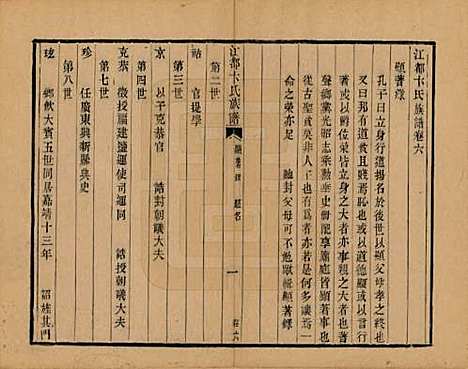 江都卞氏族譜卷六
顯著錄
孔子曰立身行道揚名於後世以顯父母孝之終也
又曰邦有道貧且賤焉恥也或
爵位之榮皆立身之大者而事親之大亦
鄉黨光昭志乘勲垂史册龍享 廟庭皆顯著者
從古聖賢莫非人也有為者亦若是於他人多讓焉一
命之榮亦足 馳封父母可不勉歟輯顯著錄
江都卞氏族譜 顯著錄 題名 一 卷之六
第二世
站 官提學
第三世
京 以子克恭官 誥封朝議大夫
第四世
克恭 徵授福建鹽運使司運使 誥授朝議大夫
第七世
珍 任廣東興新縣典史
第八世
玹 鄉飲大賓五世同居嘉靖十三年 詔旌其門